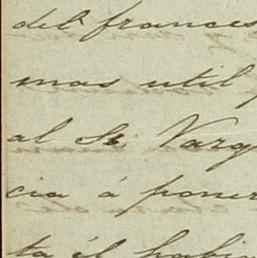 del frances
mas util
al Sr. Varg
cia á poner
ta él habia